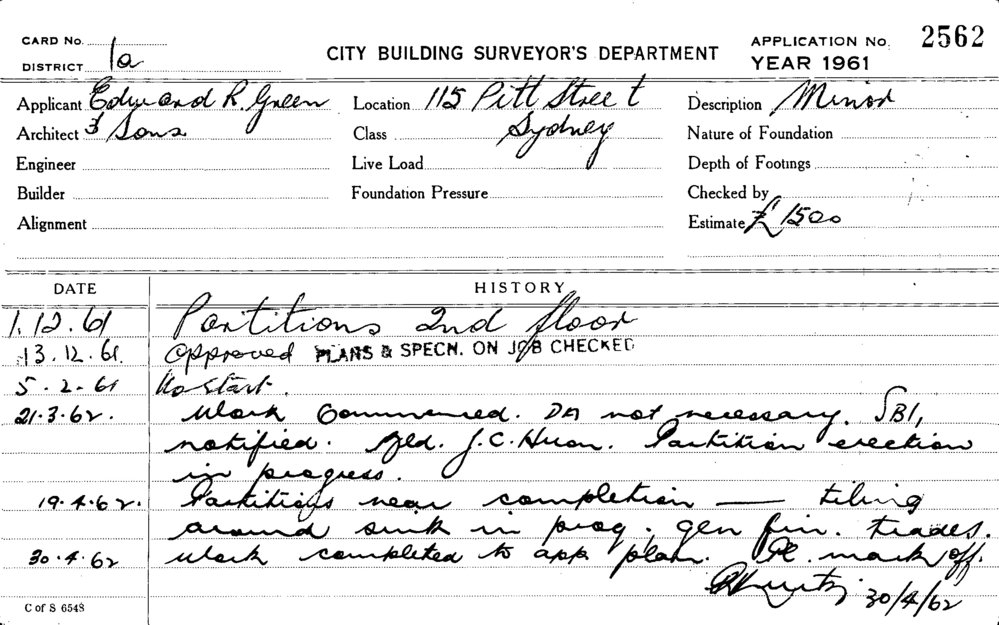 CARD No. 1a
DISTRICT
CITY BUILDING SURVEYOR'S DEPARTMENT
APPLICATION No. 2562
YEAR 1961
Applicant Edward R. Green
Architect & Sons
Engineer
Builder
Alignment
Location 115 Pitt Street
Class Sydney
Live Load
Foundation Pressure
Description Minor
Nature of Foundation
Depth of Footings
Checked by
Estimate £1500
DATE HISTORY
1.12.61 Partitions 2nd floor
13.12.61. Approved PLANS & SPECN. ON JOB CHECKED
5.2.61 No start.
21.3.62. Work commenced. DA not necessary. SBI,
notified. Bld. J.C. Huon. Partition erection
in progress.
19.4.62. Partitions near completion — tiling
around sink in prog. gen fin. trades.
30.4.62 Work completed to app plan. Pl. mark off.
30/4/62
C of S 6548